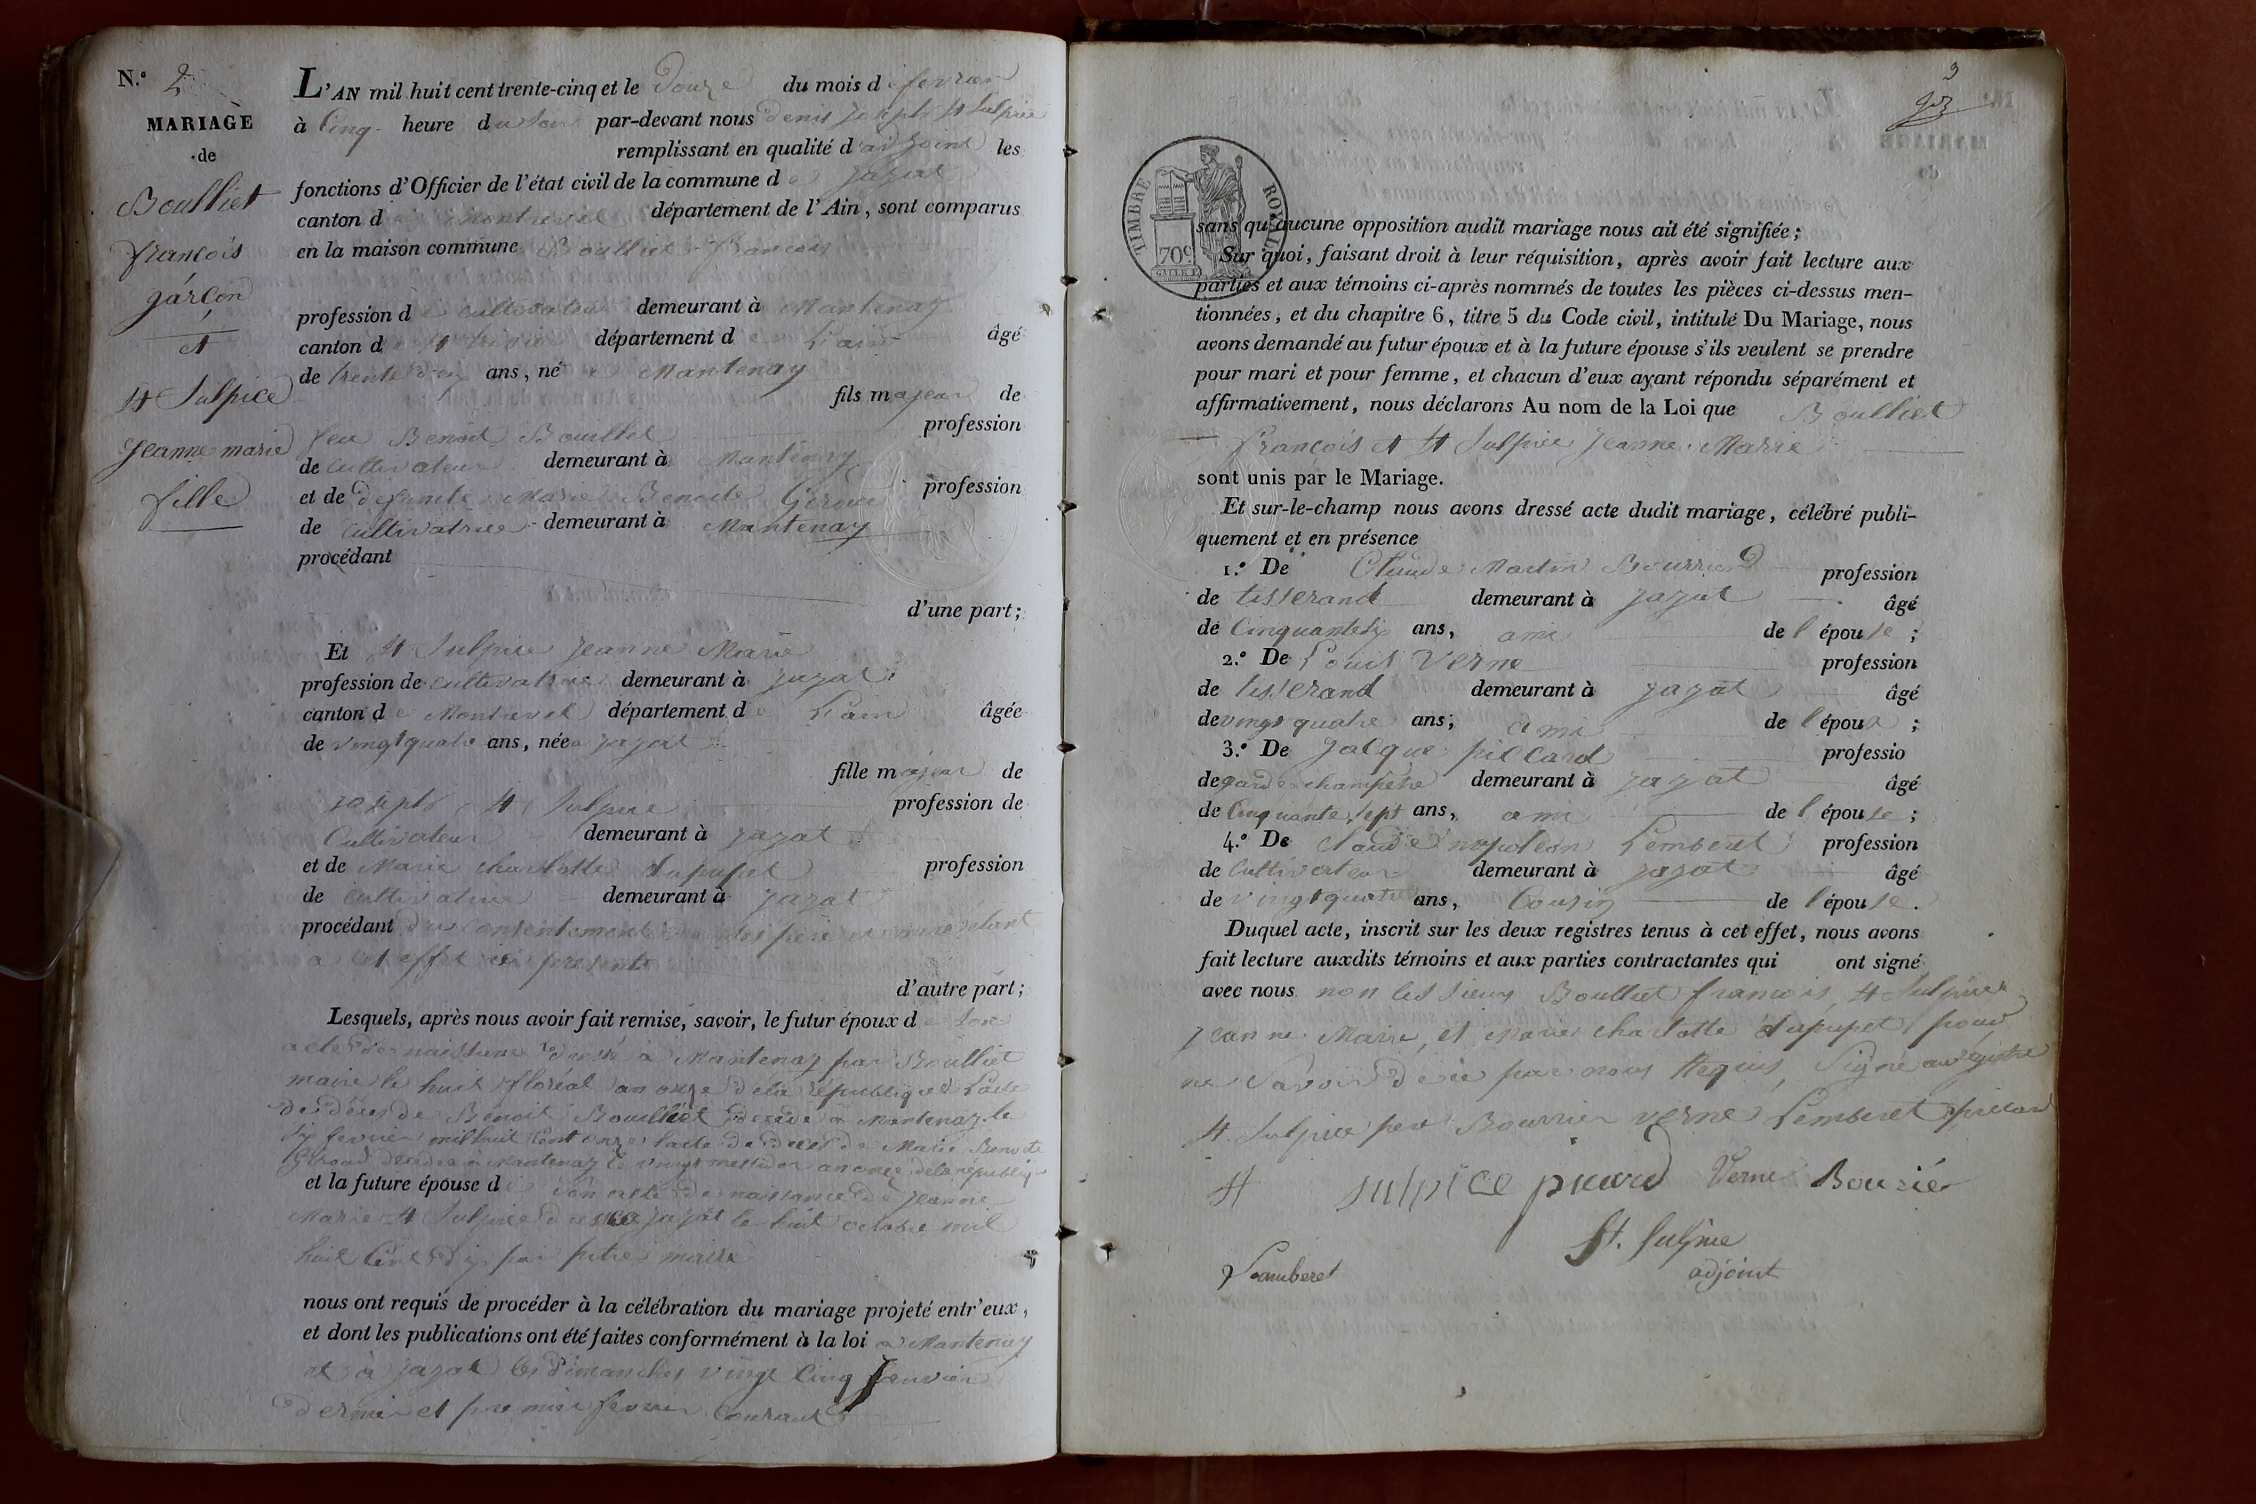 N.° 2
MARIAGE
de
Boulliet
françois
garçon
et
St Sulpice
Jeanne marie
fille
L'AN mil huit cent trente-cinq et le Douze du mois de fevrier
à Cinq heure du soir par-devant nous denis joseph St Sulpice
remplissant en qualité d'adjoint les
fonctions d'Officier de l'état civil de la commune de jayat
canton de Montrevel département de l'Ain, sont comparus
en la maison commune Boulliet françois
profession de cultivateur demeurant à Mantenay
canton de St département de L'ain âgé
de trente deux ans, né à Mantenay
fils majeur de
feu Benoit Boulliet profession
de Cultivateur demeurant à Mantenay
et de defunte Marie Benoite Giroud profession
de Cultivatrice demeurant à Mantenay
procédant
d'une part;
Et St Sulpice Jeanne Marie
profession de cultivatrice demeurant à jayat
canton de Montrevel département de L'ain âgée
de vingt quatre ans, née a jayat
fille majeur de
joseph St Sulpice profession de
Cultivateur demeurant à jayat
et de Marie charlotte dupupet profession
de cultivatrice demeurant à jayat
procédant du Consentement de ses père et mère etant
a cet effet ici présents
d'autre part;
Lesquels, après nous avoir fait remise, savoir, le futur époux de son
acte de naissance dressé à Mantenay par Boulliet
maire le huit floréal an onze de la république L'acte
de décès de Benoit Boulliet décédé a Mantenay le
six fevrier mil huit Cent onze l'acte de décès de Marie Benoite
Giroud décédée à Mantenay le vingt messidor an onze de la républiq
et la future épouse de son acte de naissance de Jeanne
Marie St Sulpice dressé a jayat le huit octobre mil
huit Cent dix par maire
nous ont requis de procéder à la célébration du mariage projeté entr'eux,
et dont les publications ont été faites conformément à la loi a Mantenay
et à jayat les Dimanches vingt Cinq janvier
dernier et premier fevrier Courant
3
TIMBRE ROYAL
70c
sans qu'aucune opposition audit mariage nous ait été signifiée;
Sur quoi, faisant droit à leur réquisition, après avoir fait lecture aux
parties et aux témoins ci-après nommés de toutes les pièces ci-dessus men-
tionnées, et du chapitre 6, titre 5 du Code civil, intitulé Du Mariage, nous
avons demandé au futur époux et à la future épouse s'ils veulent se prendre
pour mari et pour femme, et chacun d'eux ayant répondu séparément et
affirmativement, nous déclarons Au nom de la Loi que Boulliet
François et St Sulpice Jeanne Marie
sont unis par le Mariage.
Et sur-le-champ nous avons dressé acte dudit mariage, célébré publi-
quement et en présence
1.° De Claude Martin Bourrier profession
de tisserand demeurant à jayat âgé
de Cinquante six ans, ami de l'épouse;
2.° De Louis Verne profession
de tisserand demeurant à jayat âgé
de vingt quatre ans, ami de l'époux;
3.° De Jacque piccard professio
de garde champêtre demeurant à jayat âgé
de Cinquante sept ans, ami de l'épouse;
4.° De Claude napoléon Lemberet profession
de Cultivateur demeurant à jayat âgé
de vingt quatre ans, Cousin de l'épouse.
Duquel acte, inscrit sur les deux registres tenus à cet effet, nous avons
fait lecture auxdits témoins et aux parties contractantes qui ont signé
avec nous non les sieurs Boulliet françois, St Sulpice
Jeanne Marie, et Marie charlotte dupupet pour
ne Savoir de ce par nous Requis, Signé au registre
St Sulpice père Bourrier verne Lemberet piccard
St sulpice picard Verne Bourié
Lamberet
St. Sulpice
adjoint